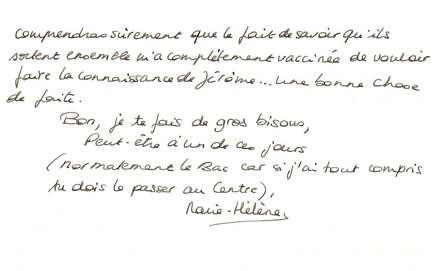 comprendras sûrement que le fait de savoir qu'ils
sortent ensemble m'a complètement vaccinée de vouloir
faire la connaissance de Jérôme... une bonne chose
de faite.
Bon, je te fais de gros bisous,
Peut-être à un de ces jours
(normalement le Bac car si j'ai tout compris
tu dois le passer au Centre),
Marie-Hélène